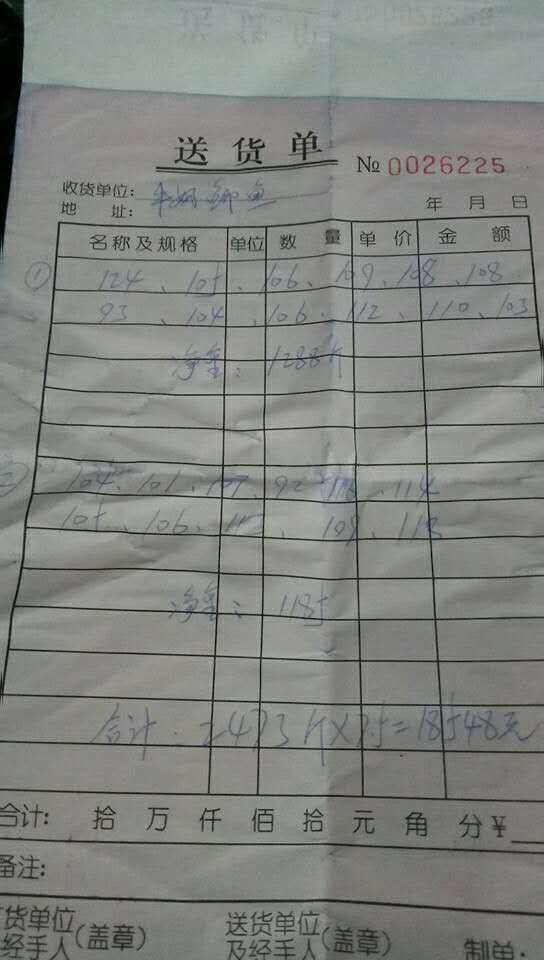 送货单 № 0026225
收货单位: 鲫鱼
地 址: 年 月 日
名称及规格 单位 数 量 单 价 金 额
① 124、105、106、109、108、108
93、104、106、112、110、103
净重: 1288斤
104、101、107、92、114
105、106、109、118
净重: 1185
合计: 2473斤×7.5=18548元
合计: 拾 万 仟 佰 拾 元 角 分 ¥
备注:
货单位 送货单位
经手人(盖章) 及经手人(盖章) 制单: